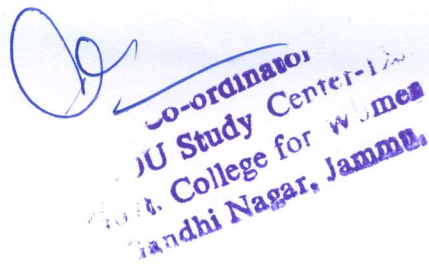 Co-ordinator
OU Study Center-12
Govt. College for Women
Gandhi Nagar, Jammu,